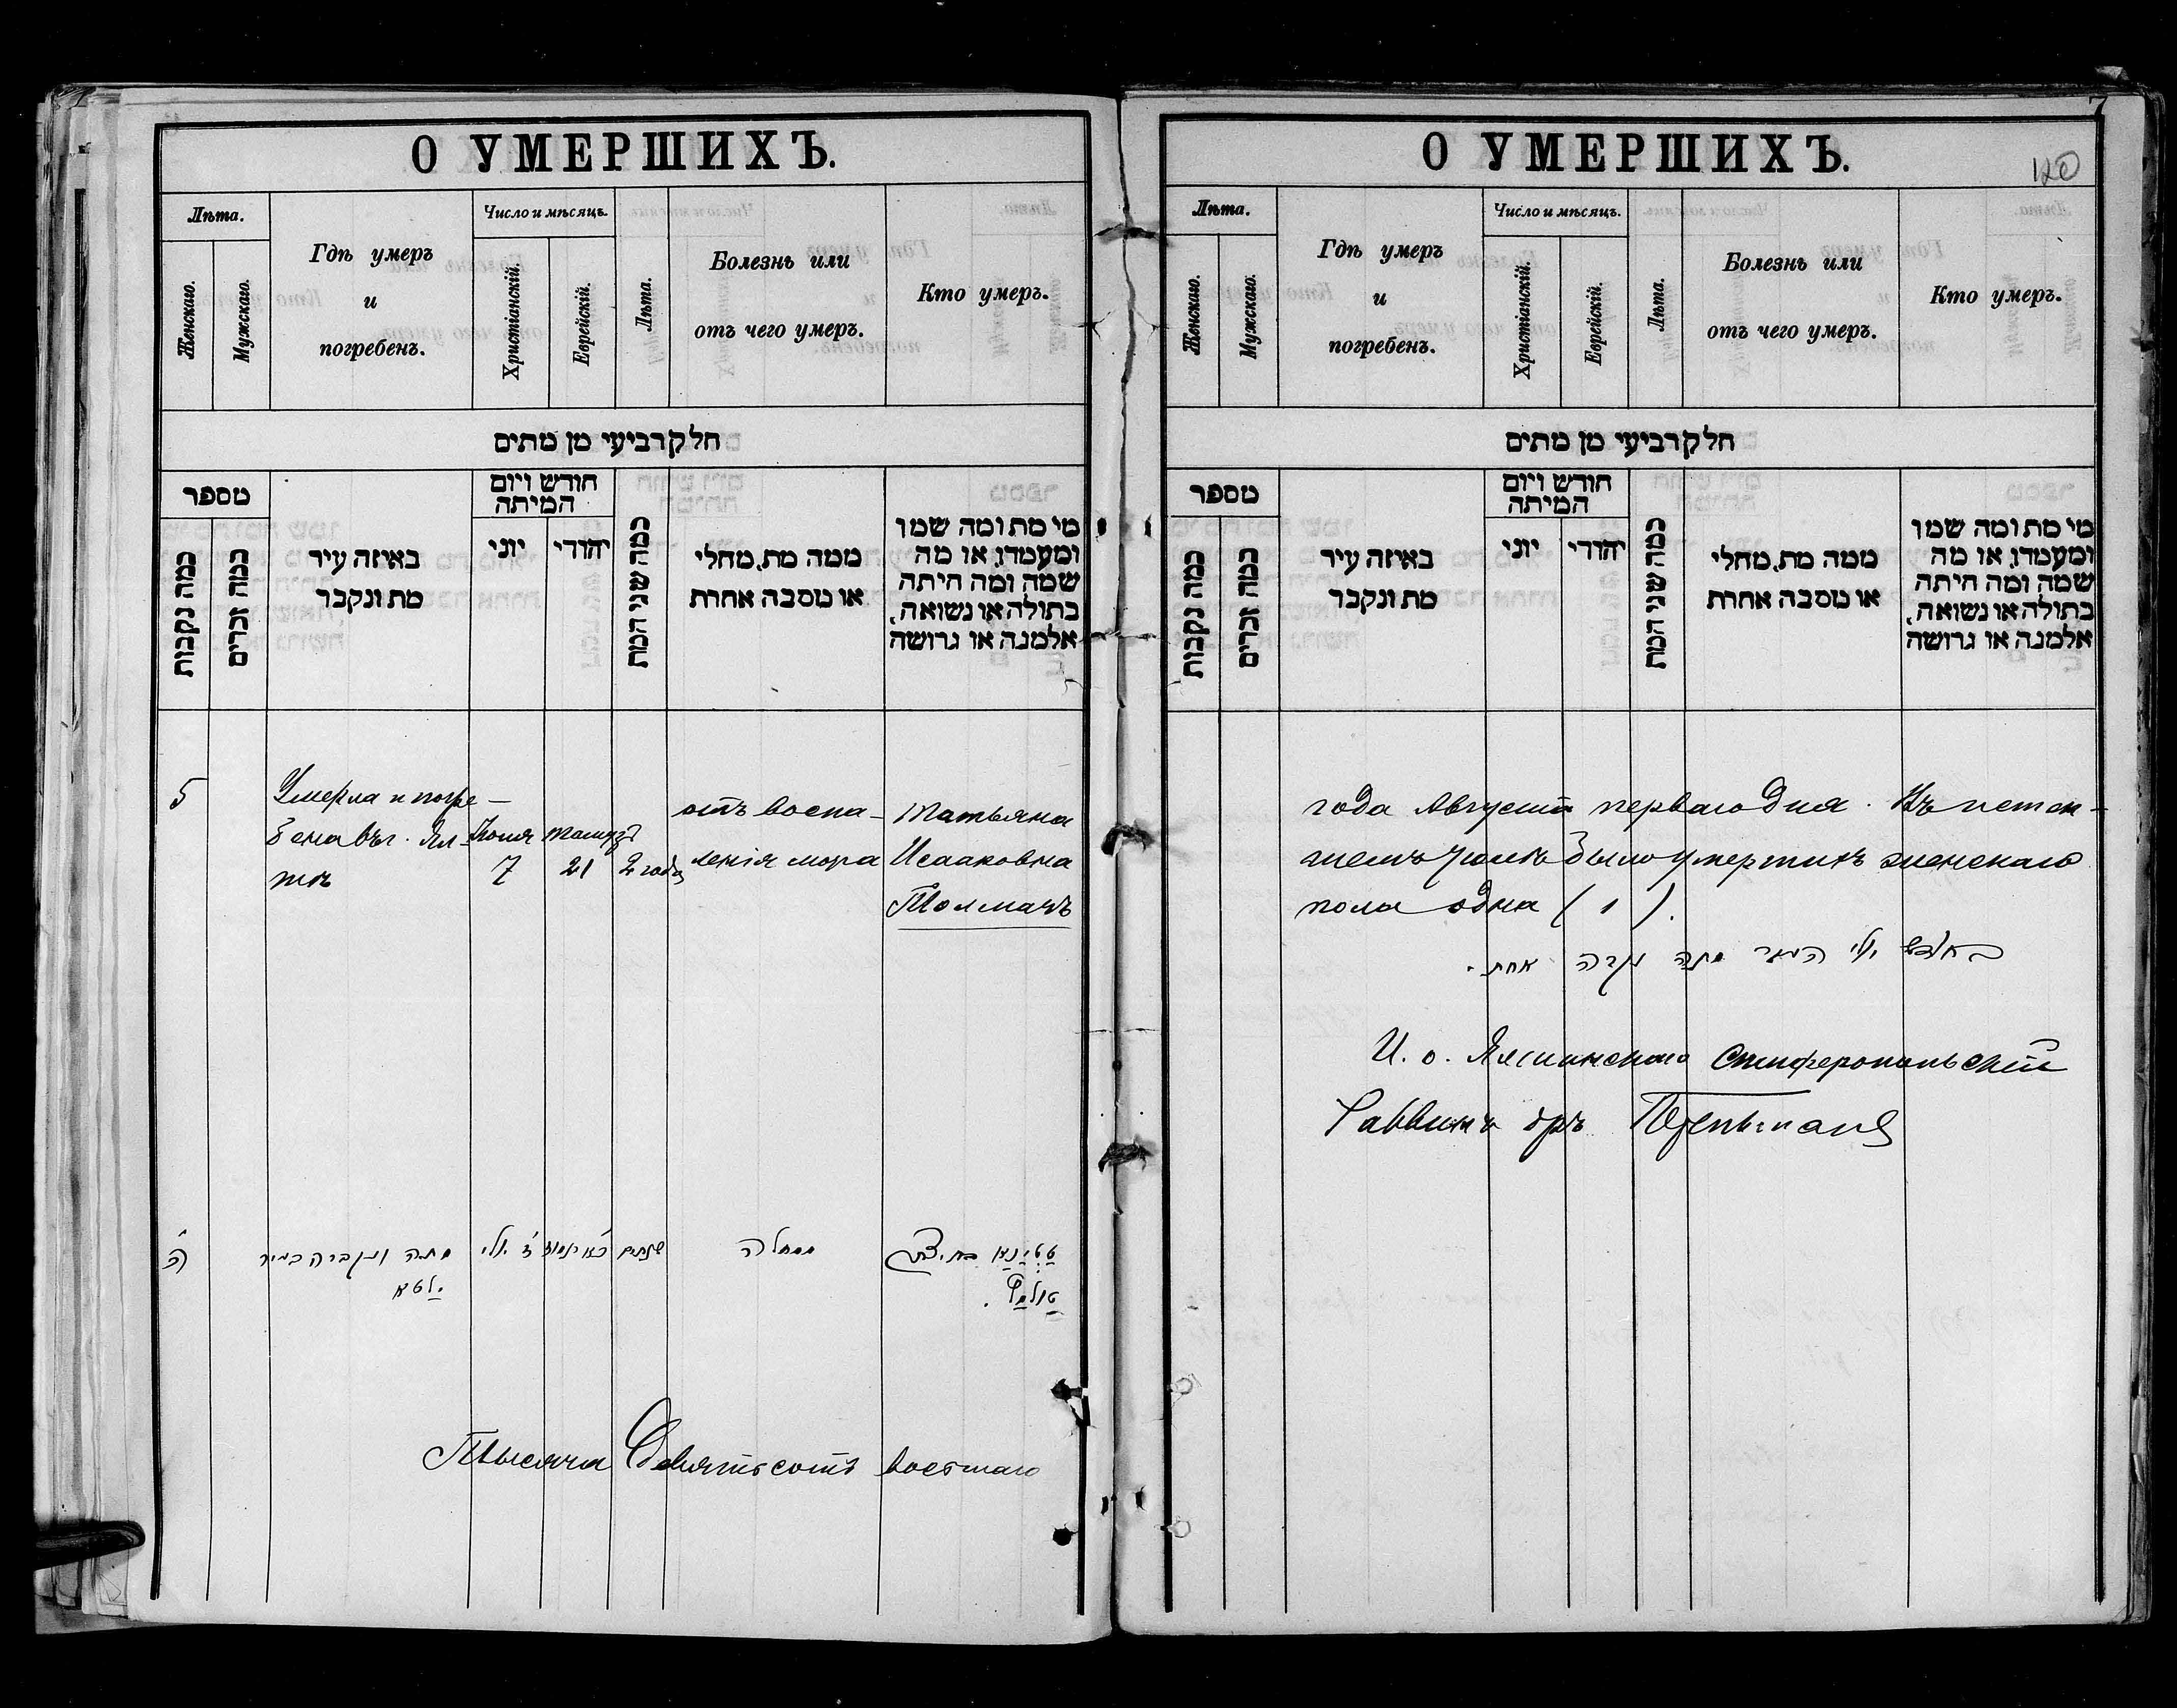 О УМЕРШИХЪ.
Лѣта.
Женскаго.
Мужскаго.
Гдѣ умеръ
и
погребенъ.
Число и мѣсяцъ.
Христіанскій.
Еврейскій.
Лѣта.
Болезнь или
отъ чего умеръ.
Кто умеръ.
חלק רביעי מן מתים
מספר
כמה נקבות
כמה זכרים
באיזה עיר
מת ונקבר
חודש ויום
המיתה
יוני
יהודי
כמה שני המת
ממה מת, מחלי
או מסבה אחרת
מי מת ומה שמו
ומעמדו, או מה
שמה ומה היתה
בתולה או נשואה,
אלמנה או גרושה
5
Умерла и погре-
бена въ г. Ял-
тѣ
Іюля
7
Тамузъ
21
2 года
отъ воспа-
ленія мозга
Татьяна
Исааковна
Толмачъ
ה
מתה ונקברה בעיר
ילטא
ז יולי
כ״א תמוז
שנתים
ממחלה
טטינא בת יצחק
טולמץ.
Тысяча девятьсотъ восьмаго
О УМЕРШИХЪ.
7
120
Лѣта.
Женскаго.
Мужскаго.
Гдѣ умеръ
и
погребенъ.
Число и мѣсяцъ.
Христіанскій.
Еврейскій.
Лѣта.
Болезнь или
отъ чего умеръ.
Кто умеръ.
חלק רביעי מן מתים
מספר
כמה נקבות
כמה זכרים
באיזה עיר
מת ונקבר
חודש ויום
המיתה
יוני
יהודי
כמה שני המת
ממה מת, מחלי
או מסבה אחרת
מי מת ומה שמו
ומעמדו, או מה
שמה ומה היתה
בתולה או נשואה,
אלמנה או גרושה
года Августа перваго дня. Въ истек-
шемъ Іюлѣ было умершихъ женскаго
пола одна (1).
בחודש יולי העבר מתה נקבה אחת.
И. о. Ялтинскаго Симферопольскій
Раввинъ